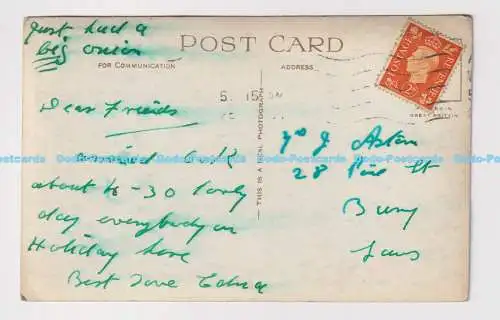 Just had a
big
POST CARD
FOR COMMUNICATION
ADDRESS
Dear Friends
arrived
about 4-30 lovely
day everybody on
Holiday here
Best Love Edna
THIS IS A REAL PHOTOGRAPH
5. 15 PM
J Aston
28 Pine St
Bury
Lancs
POSTAGE
REVENUE
GREAT BRITAIN
Dodo-Postcards Dodo-Postcards Dodo-Postcards Dodo-Postcards Dodo-Postcards